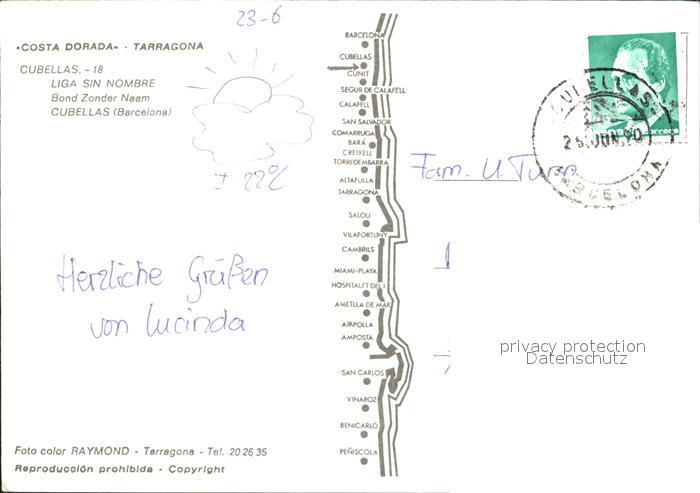 23-6
«COSTA DORADA» - TARRAGONA
CUBELLAS. - 18
LIGA SIN NOMBRE
Bond Zonder Naam
CUBELLAS (Barcelona)
± 22°C
Herzliche Grüßen
von Lucinda
Foto color RAYMOND - Tarragona - Tel. 20 26 35
Reproducción prohibida - Copyright
BARCELONA
CUBELLAS
CUNIT
SEGUR DE CALAFELL
CALAFELL
SAN SALVADOR
COMARRUGA
BARÁ
CREIXELL
TORREDEMBARRA
ALTAFULLA
TARRAGONA
SALOU
VILAFORTUNY
CAMBRILS
MIAMI-PLAYA
HOSPITALET DEL I.
AMETLLA DE MAR
AMPOLLA
AMPOSTA
SAN CARLOS
VINAROZ
BENICARLÓ
PEÑISCOLA
CUBELLAS
JUN. 90
BARCELONA
correos
Fam. U. Turan
privacy protection
Datenschutz